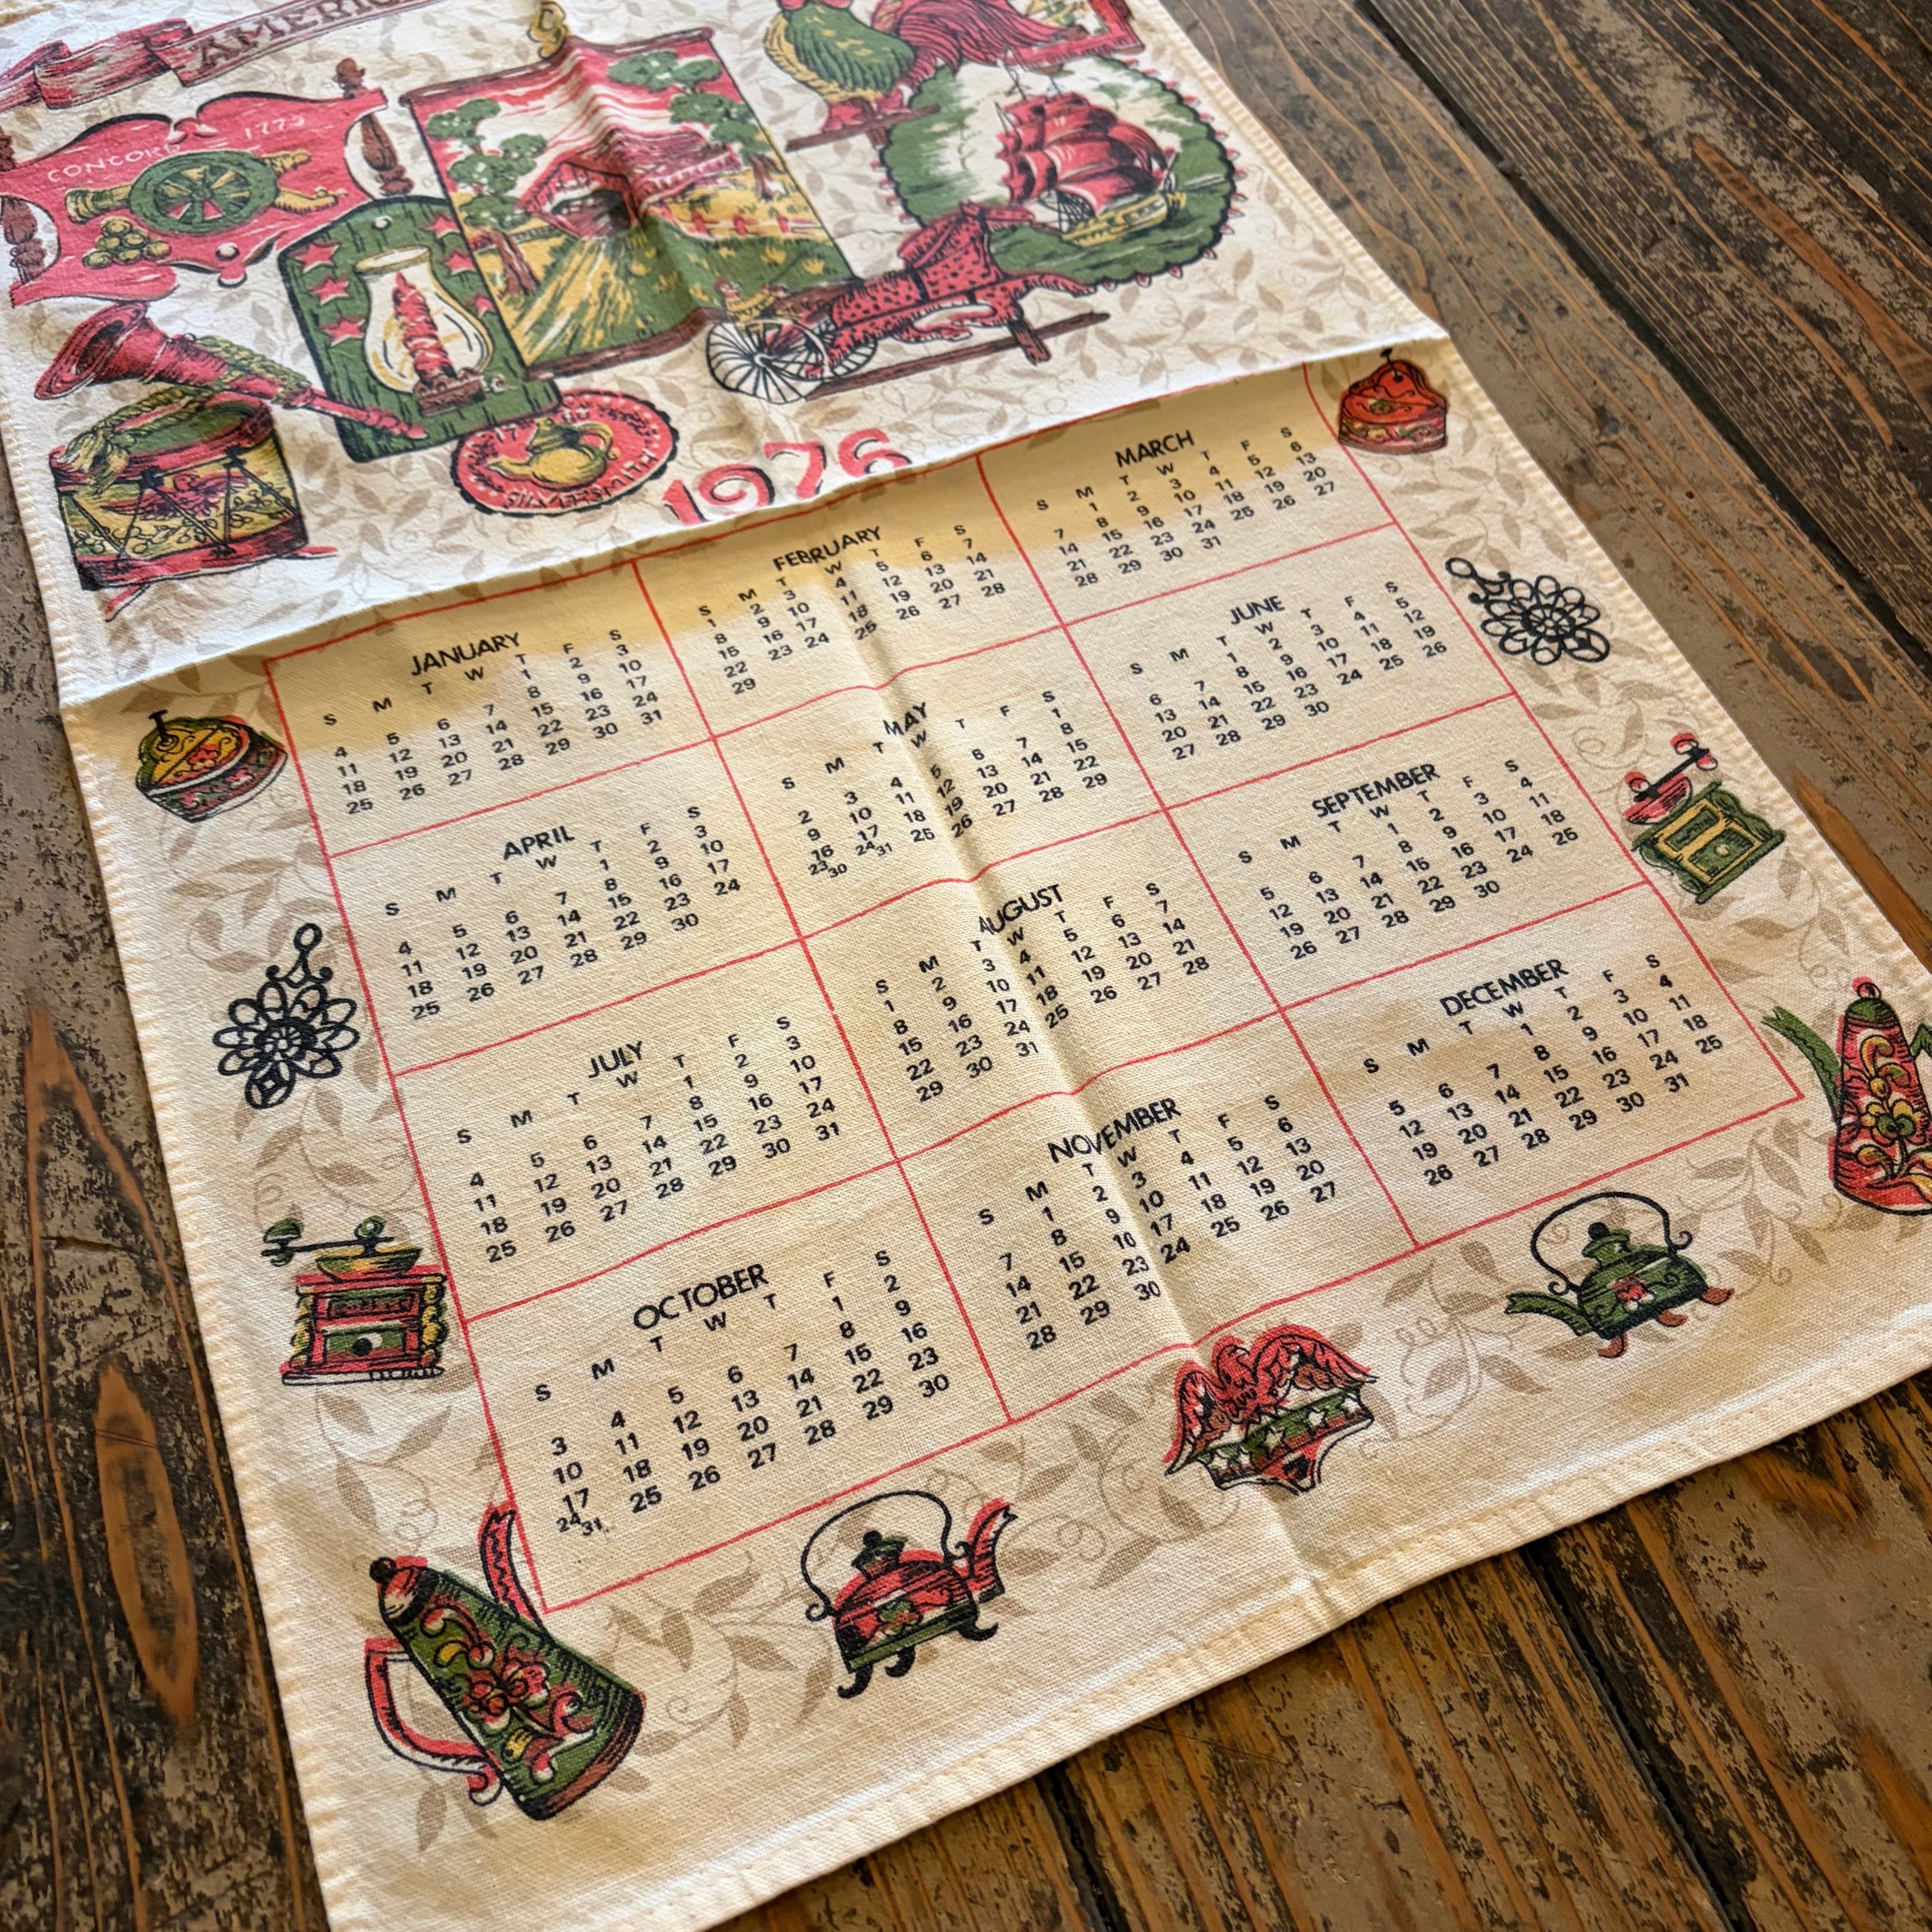 AMERIC
CONCORD 1775
SILVERSMITH
1976
JANUARY
S M T W T F S
1 2 3
4 5 6 7 8 9 10
11 12 13 14 15 16 17
18 19 20 21 22 23 24
25 26 27 28 29 30 31
FEBRUARY
S M T W T F S
1 2 3 4 5 6 7
8 9 10 11 12 13 14
15 16 17 18 19 20 21
22 23 24 25 26 27 28
29
MARCH
S M T W T F S
1 2 3 4 5 6
7 8 9 10 11 12 13
14 15 16 17 18 19 20
21 22 23 24 25 26 27
28 29 30 31
APRIL
S M T W T F S
1 2 3
4 5 6 7 8 9 10
11 12 13 14 15 16 17
18 19 20 21 22 23 24
25 26 27 28 29 30
MAY
S M T W T F S
1
2 3 4 5 6 7 8
9 10 11 12 13 14 15
16 17 18 19 20 21 22
23 24 25 26 27 28 29
30 31
JUNE
S M T W T F S
1 2 3 4 5
6 7 8 9 10 11 12
13 14 15 16 17 18 19
20 21 22 23 24 25 26
27 28 29 30
JULY
S M T W T F S
1 2 3
4 5 6 7 8 9 10
11 12 13 14 15 16 17
18 19 20 21 22 23 24
25 26 27 28 29 30 31
AUGUST
S M T W T F S
1 2 3 4 5 6 7
8 9 10 11 12 13 14
15 16 17 18 19 20 21
22 23 24 25 26 27 28
29 30 31
SEPTEMBER
S M T W T F S
1 2 3 4
5 6 7 8 9 10 11
12 13 14 15 16 17 18
19 20 21 22 23 24 25
26 27 28 29 30
OCTOBER
S M T W T F S
1 2
3 4 5 6 7 8 9
10 11 12 13 14 15 16
17 18 19 20 21 22 23
24 25 26 27 28 29 30
31
NOVEMBER
S M T W T F S
1 2 3 4 5 6
7 8 9 10 11 12 13
14 15 10 17 18 19 20
21 22 23 24 25 26 27
28 29 30
DECEMBER
S M T W T F S
1 2 3 4
5 6 7 8 9 10 11
12 13 14 15 16 17 18
19 20 21 22 23 24 25
26 27 28 29 30 31